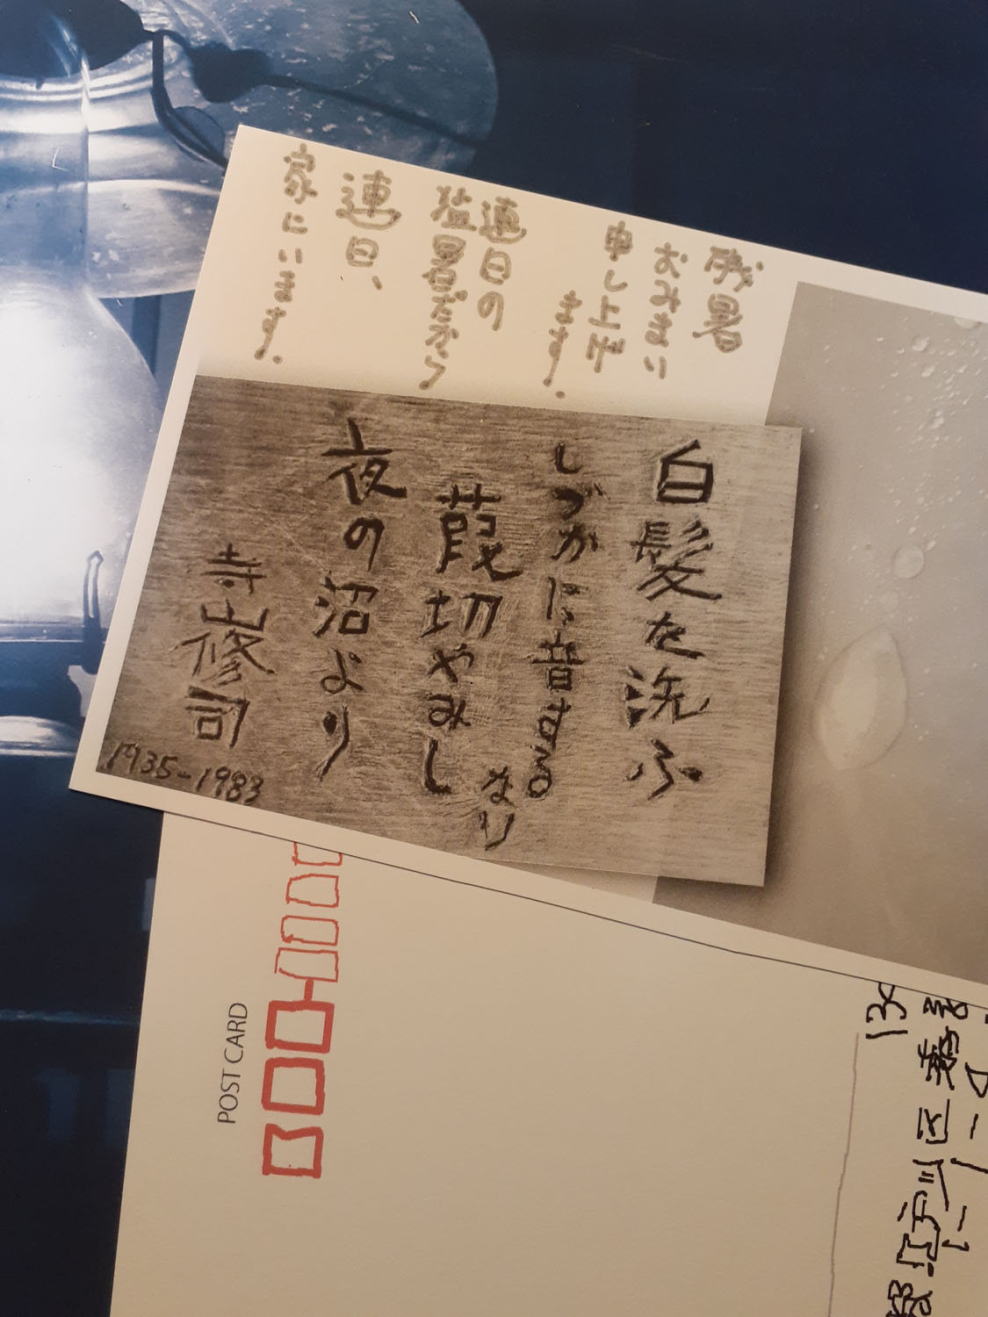 残暑
おみまい
申し上げ
ます.
連日の
猛暑だから
連日、
家にいます.
白髪を洗ふ
しづかに音する
なり
葭切やみし
夜の沼より
寺山修司
1935-1983
POST CARD